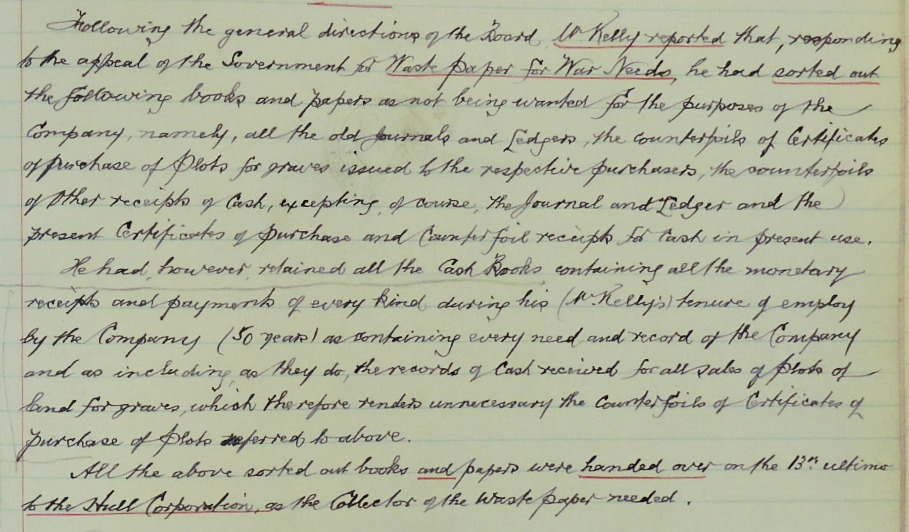 Following the general directions of the Board, Mr. Kelly reported that, responding
to the appeal of the Government for Waste paper for War Needs, he had sorted out
the following books and papers as not being wanted for the purposes of the
Company, namely, all the old Journals and Ledgers, the counterfoils of Certificates
of purchase of Plots for graves issued to the respective purchasers, the counterfoils
of other receipts of Cash, excepting, of course, the Journal and Ledger and the
present Certificates of purchase and Counterfoil receipts for Cash in present use.
He had, however, retained all the Cash Books containing all the monetary
receipts and payments of every kind during his (Mr. Kelly's) tenure of employ
by the Company (50 years) as containing every need and record of the Company
and as including, as they do, the records of Cash received for all sales of Plots of
land for graves, which therefore renders unnecessary the Counterfoils of Certificates of
purchase of Plots referred to above.
All the above sorted out books and papers were handed over on the 13th ultimo
to the Hull Corporation, as the Collector of the Waste paper needed.